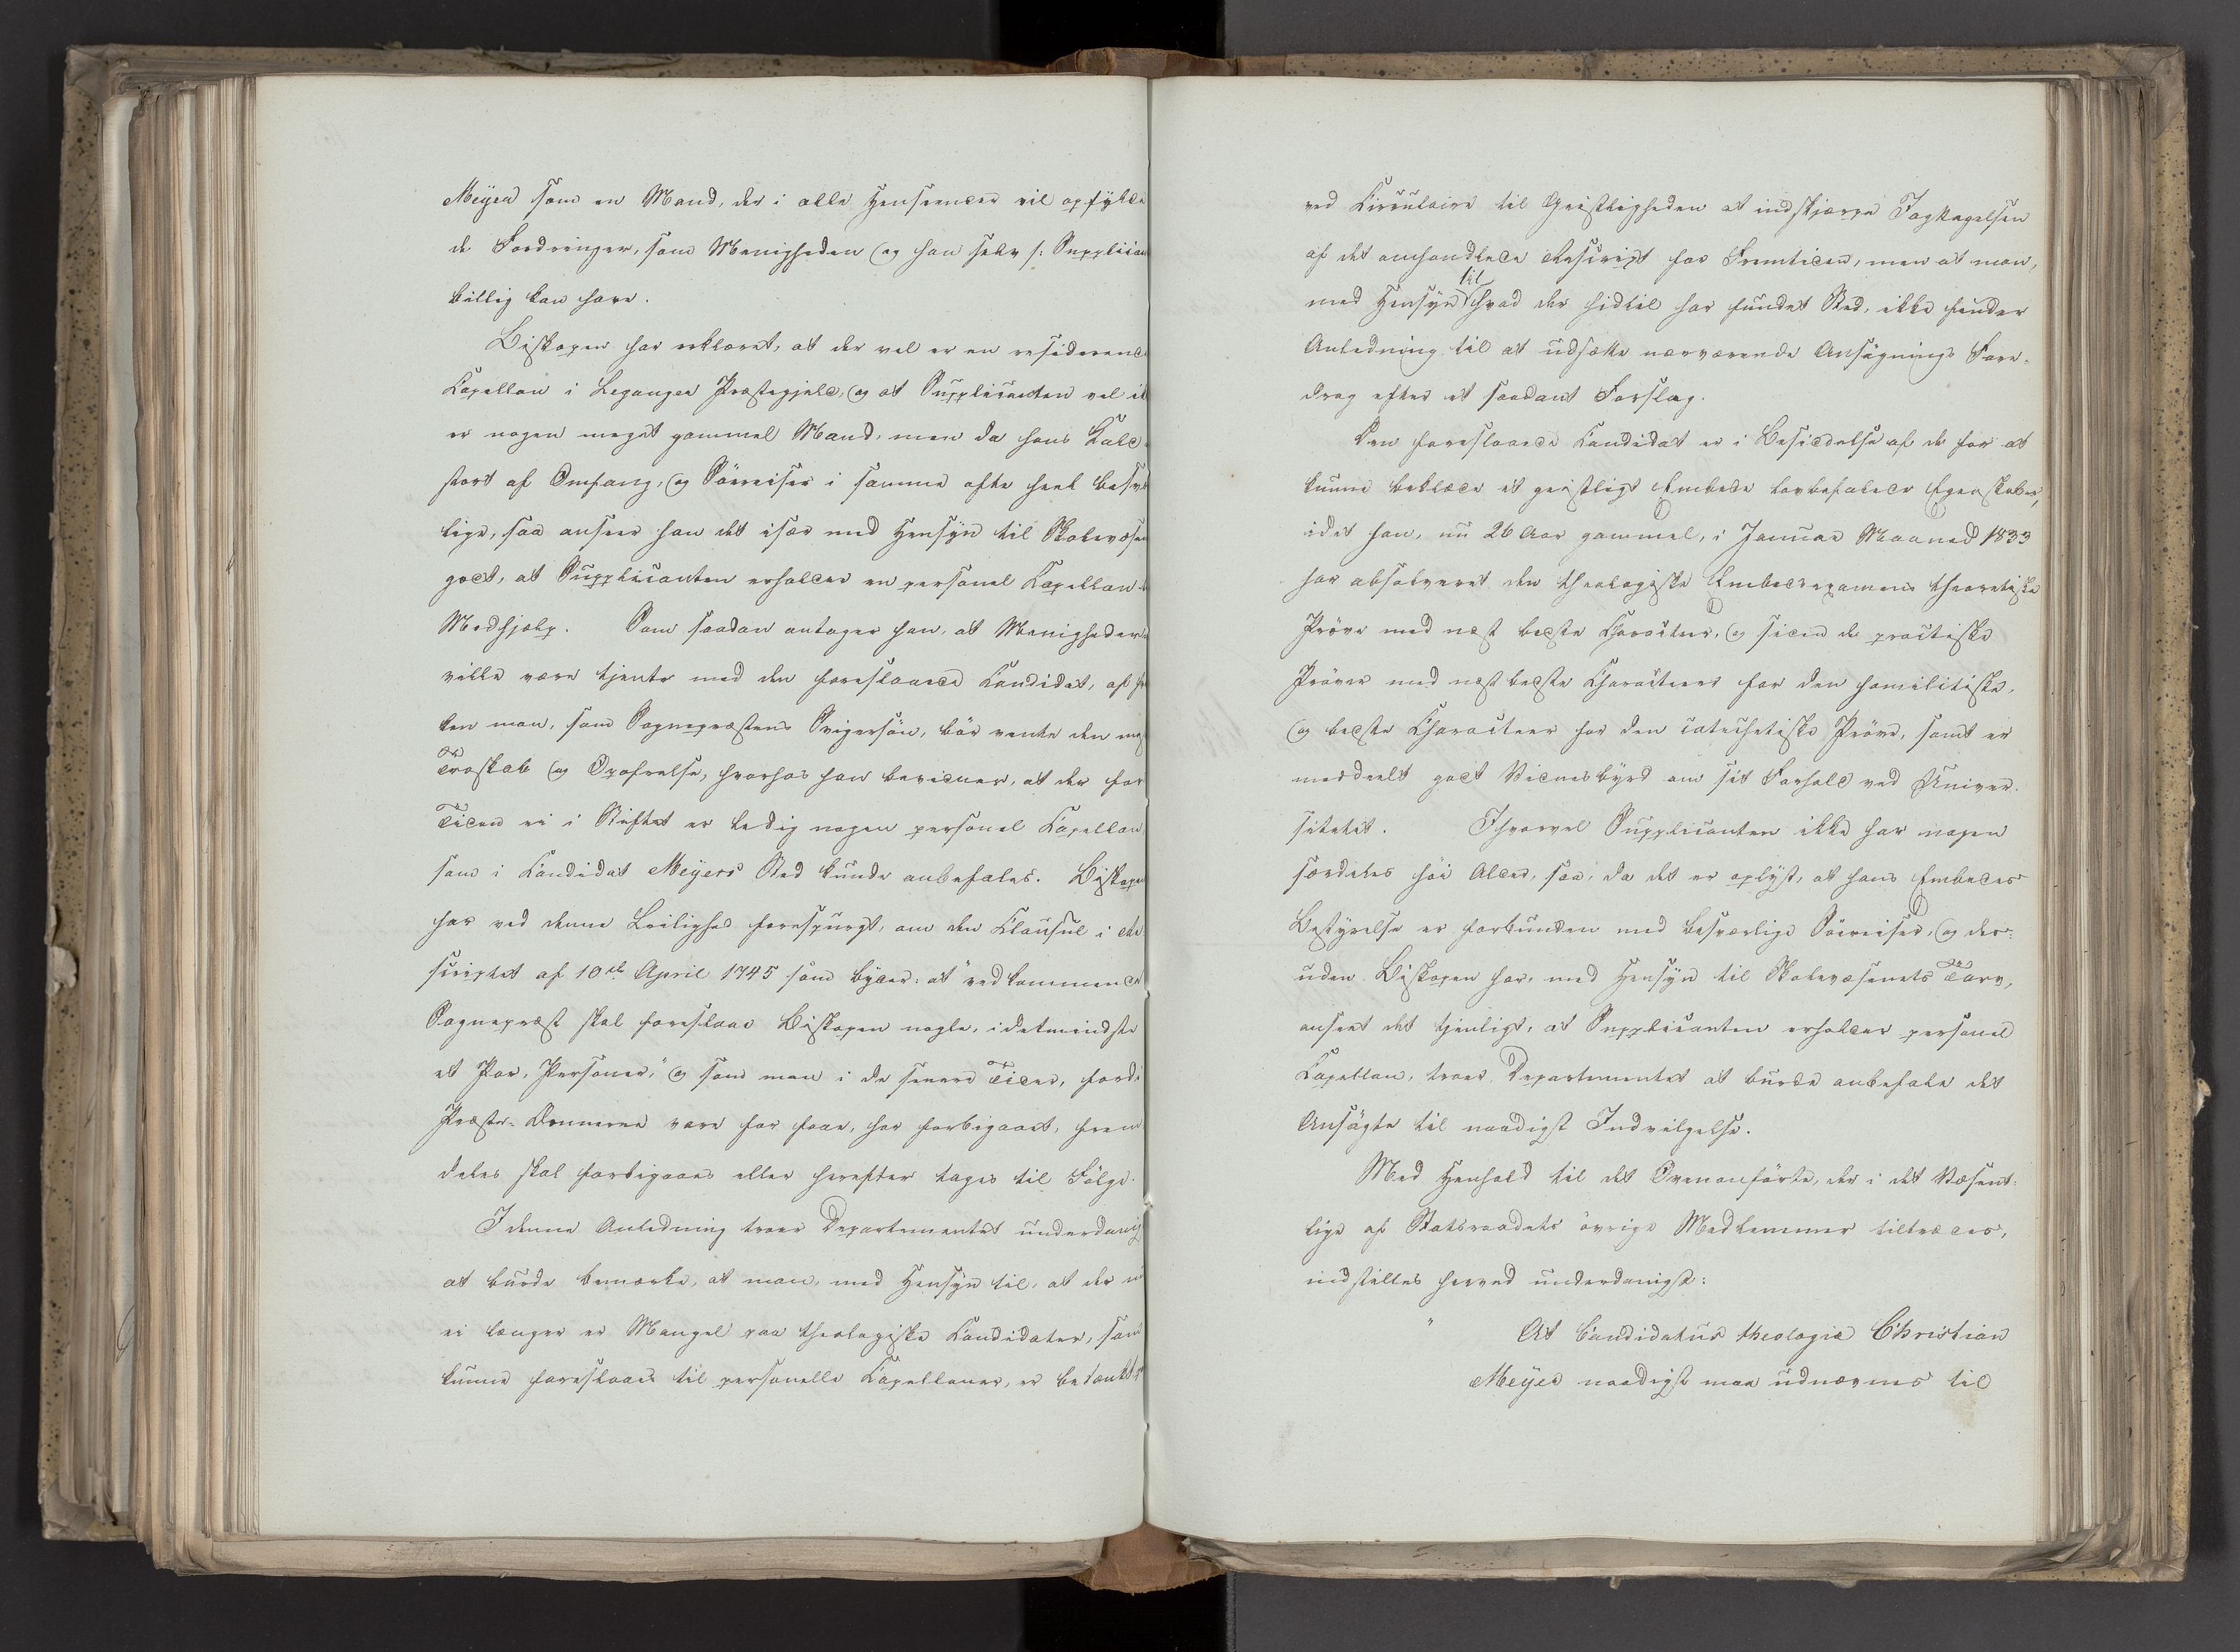 Meyer som en Mand, der i alle Henseender vil opfylde
de Fordringer, som Menigheden og han selv /: Supplican
billig kan have.
Biskopen har erklæret, at der vel er en residerend
Kapellan i Leganger Præstegjeld, og at Supplicanten vel ik
er nogen meget gammel Mand, men da hans Kald
stort af Omfang, og Söereiser i samme ofte heel besvæ
lige, saa anseer han det især med Hensyn til Skolevæsen
godt, at Supplicanten erholder en personel Kapellan
Medhjælp. Som saadan antager han, at Menighederne
ville være tjente med den foreslaaede Kandidat, af hv
ken man, som Sognepræstens Svigersön, bör vente den me
Troskab og Opofrelse, hvorhos han bevidner, at der for
Tiden ei i Stiftet er ledig nogen personel Kapellan
som i Kandidat Meyers Sted kunde anbefales. Biskopen
har ved denne Leilighed forespurgt, om den Klausul i Re
scriptet af 10de April 1745 som byder: at "vedkommende
Sognepræst skal foreslaae Biskopen nogle, idetmindste
et Par, Personer," og som man i de senere Tider, fordi
Præste-Emnerne vare for faae, har forbigaaet, frem
deles skal forbigaaes eller herefter tages til Fölge.
I denne Anledning troer Departementet underdanig
at burde bemærke, at man, med Hensyn til, at der n
ei længer er Mangel paa theologiske Kandidater, som
kunne foreslaaes til personelle Kapellaner, er betænkt
ved Circulaire til Geistligheden at indskjærpe Iagttagelsen
af det omhandlede Rescript for Fremtiden, men at man,
med Hensyn til hvad der hidtil har fundet Sted, ikke finder
Anledning til at udsætte nærværende Ansögnings Fore-
drag efter et saadant Forslag.
Den foreslaaede Kandidat er i Besiddelse af de for at
kunne beklæde et geistligt Embede lovbefalede Egenskaber,
idet han, nu 26 Aar gammel, i Januar Maaned 1833
har absolveret den theologiske Embedsexamens theoretiske
Pröve med næst bedste Character, og siden de practiske
Pröver med næst bedste Characteer for den homiletiske,
og bedste Characteer for den catechetiske Pröve, samt er
meddeelt godt Vidnesbyrd om sit Forhold ved Univer-
sitetet. Ihvorvel Supplicanten ikke har nogen
særdeles höi Alder, saa, da det er oplyst, at hans Embedes
Bestyrelse er forbunden med besværlige Söereiser, og des-
uden Biskopen har, med Hensyn til Skolevæsenets Tarv,
anseet det tjenligt, at Supplicanten erholder personel
Kapellan, troer Departementet at burde anbefale det
Ansögte til naadigst Indvilgelse.
Med Henhold til det Ovenanförte, der i det Væsent-
lige af Statsraadets övrige Medlemmer tiltrædes,
indstilles herved underdanigst:
" At Candidatus theologiæ Christian
Meyer naadigst maa udnævnes til